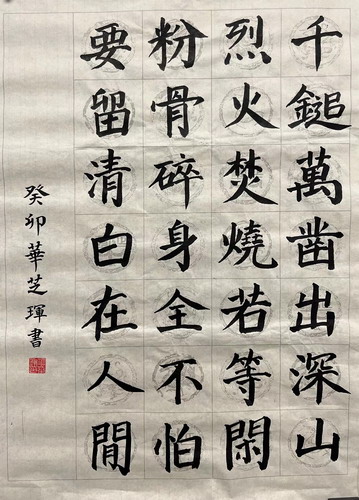 千鎚萬凿出深山
烈火焚燒若等閑
粉骨碎身全不怕
要留清白在人間
癸卯華芝琿書